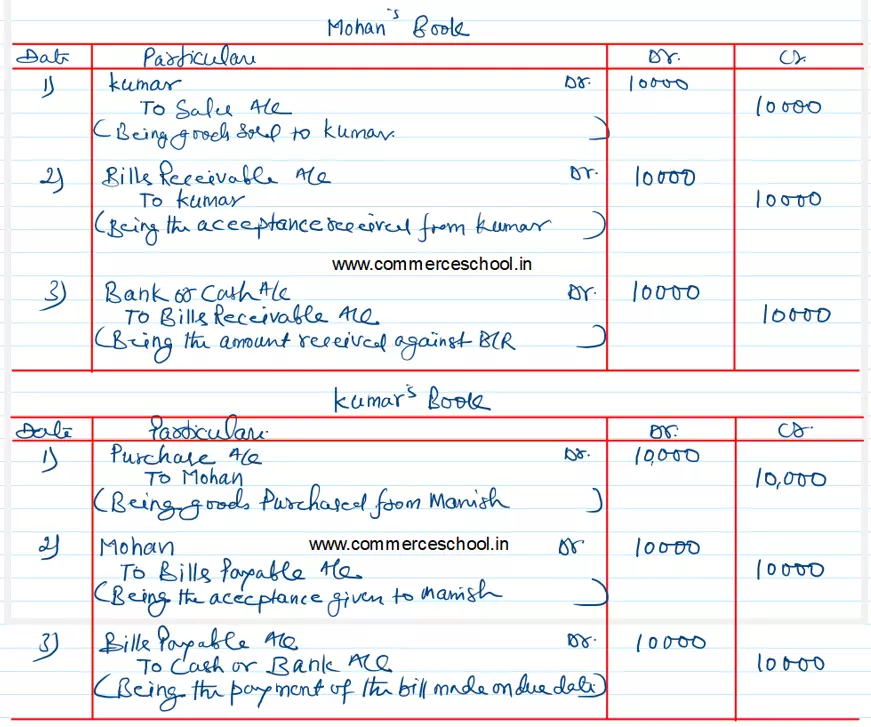 Mohan's Book
Date Particulars Dr. Cr.
1) Kumar Dr. 10000
To Sales A/c 10000
(Being goods sold to Kumar )
2) Bills Receivable A/c Dr. 10000
To Kumar 10000
(Being the acceptance received from Kumar )
www.commerceschool.in
3) Bank or Cash A/c Dr. 10000
To Bills Receivable A/c 10000
(Being the amount received against B/R )
Kumar's Book
Date Particulars Dr. Cr.
1) Purchase A/c Dr. 10,000
To Mohan 10,000
(Being goods Purchased from Manish )
2) Mohan www.commerceschool.in Dr 10000
To Bills Payable A/c 10000
(Being the acceptance given to Manish )
3) Bills Payable A/c Dr. 10000
To Cash or Bank A/c 10000
(Being the payment of the bill made on due date)